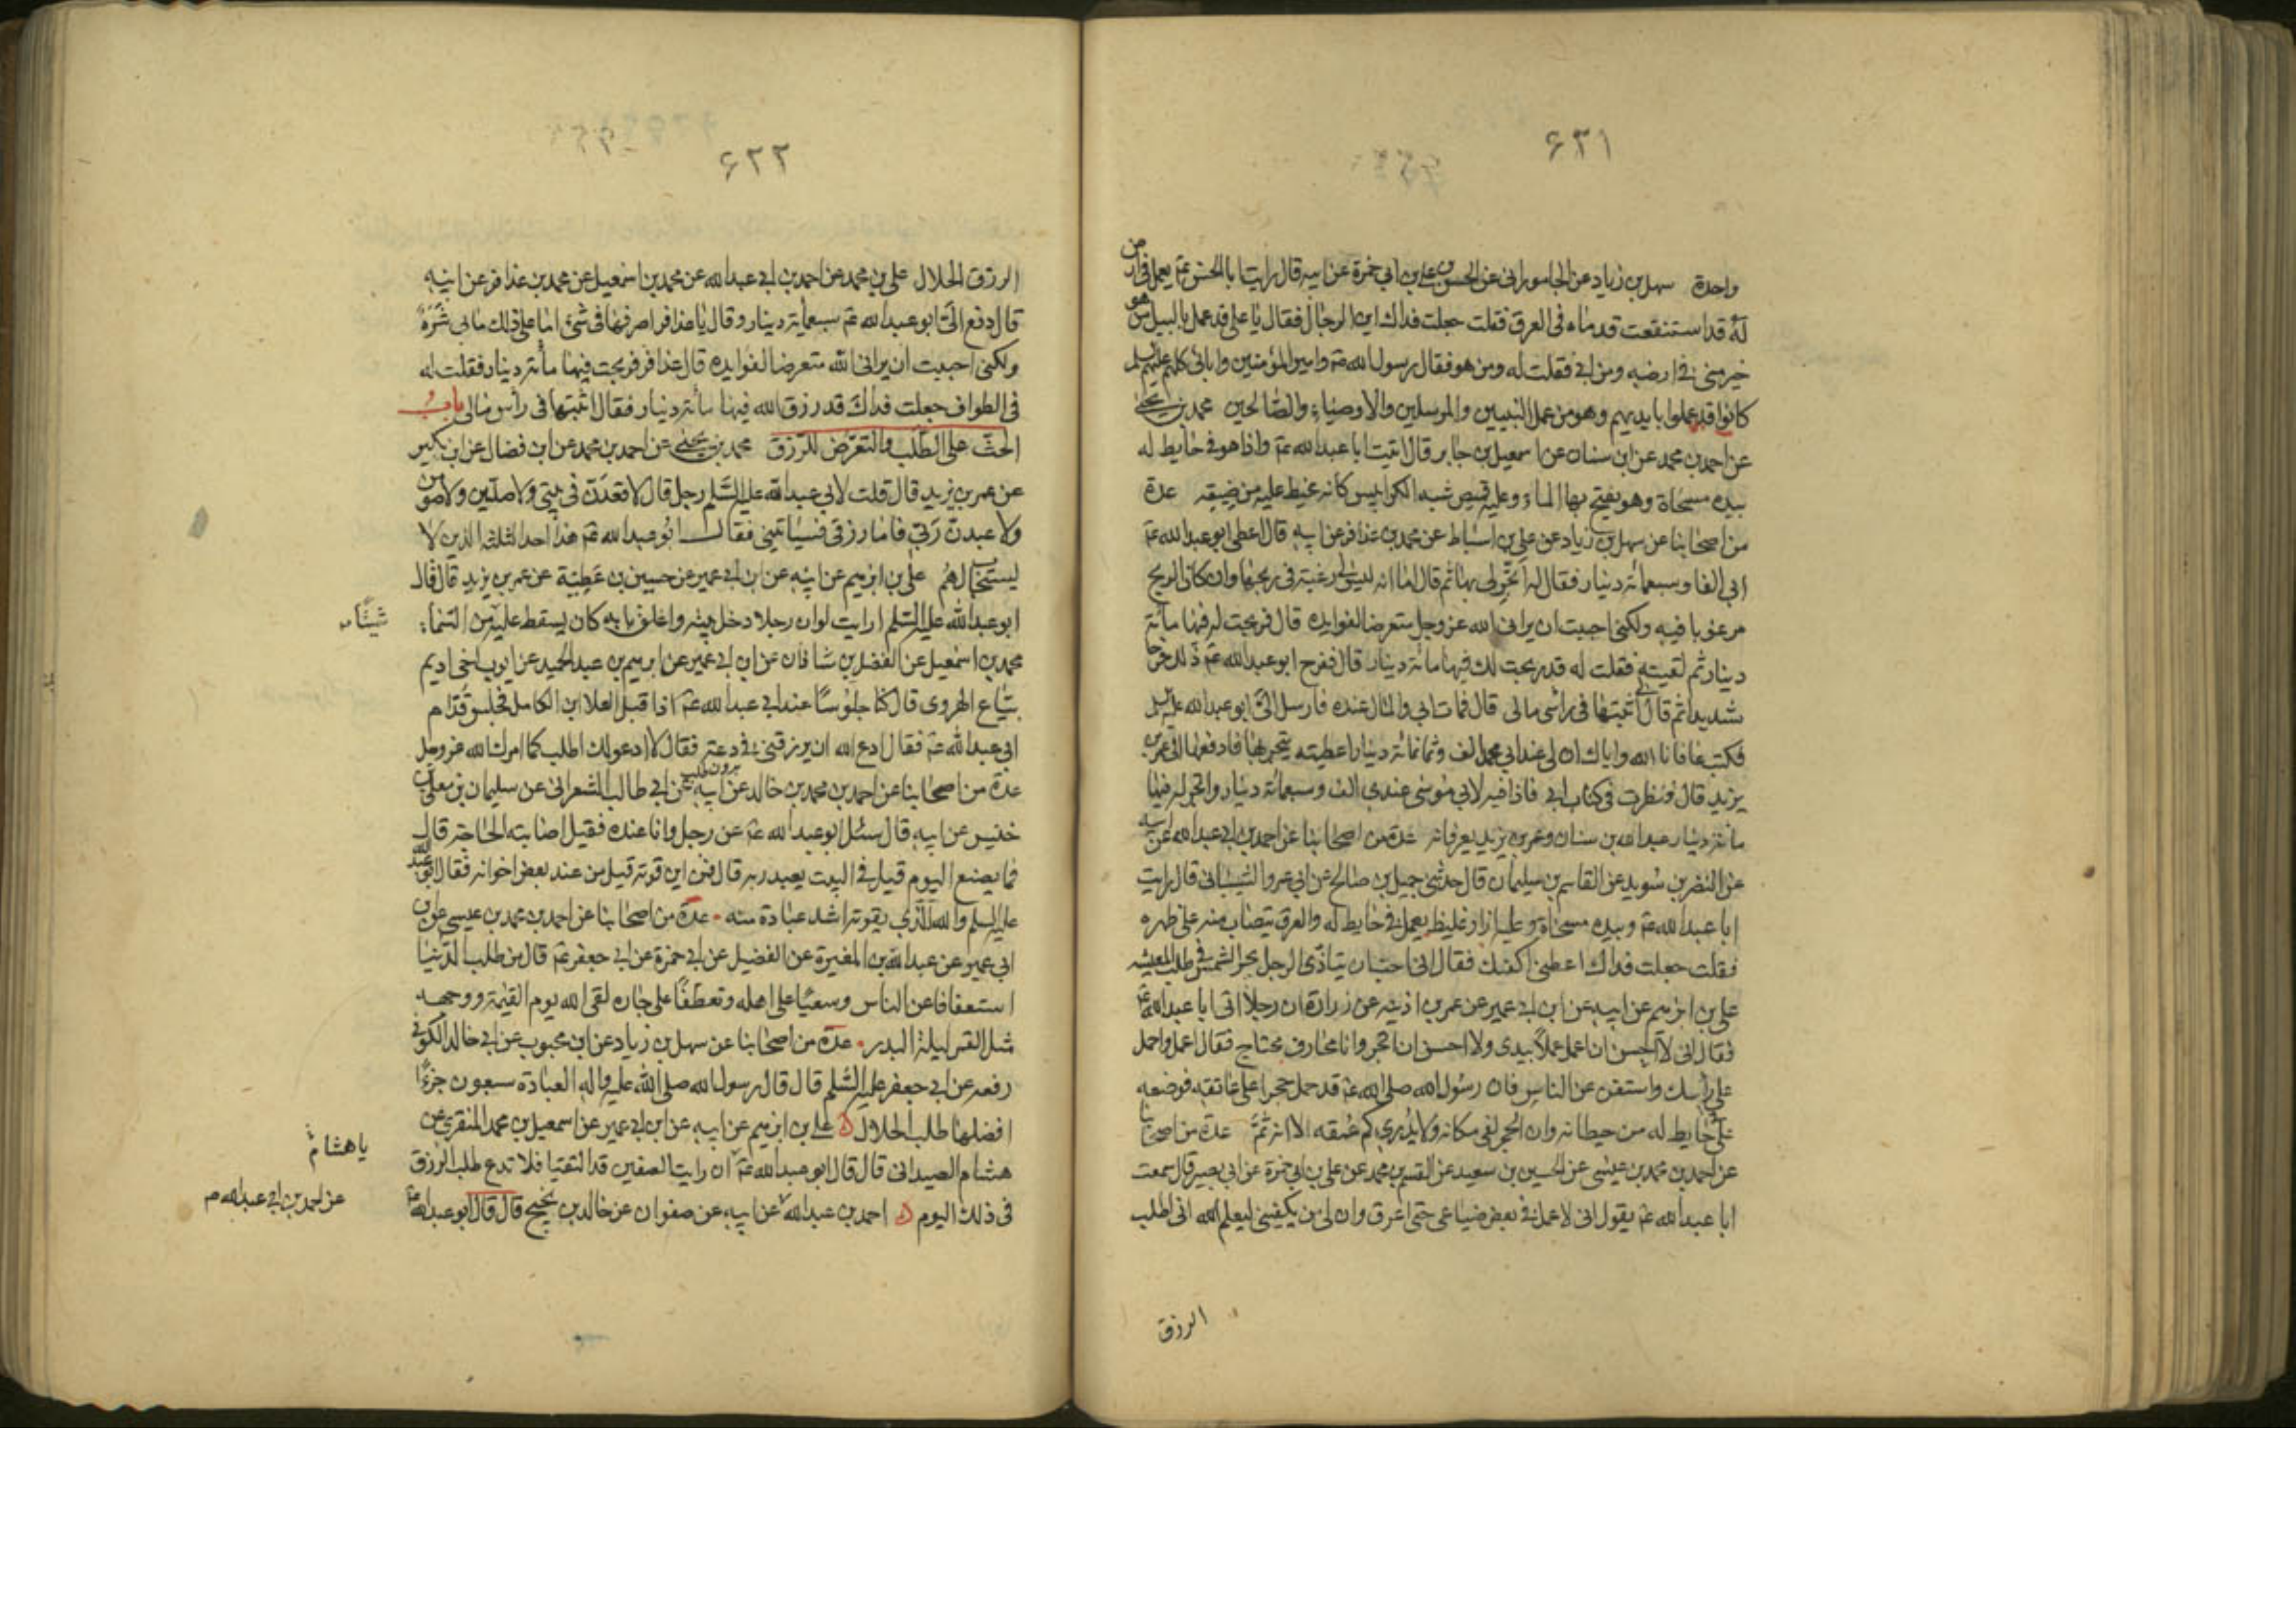 ۶۳۱
واحدة سهل بن زياد عن الجامورانى عن الحسن بن على بن ابى حمزة عن ابيه قال رايت ابا الحسن عم يعمل فى ارض
له قد استنقعت قدماه فى العرق فقلت جعلت فداك اين الرجال فقال يا على قد عمل باليد من هو
خير منى فى ارضه ومن ابى فقلت له ومن هو فقال رسول الله صم وامير المؤمنين وابائى كلهم عليهم
كانوا قد عملوا بايديهم وهو من عمل النبيين والمرسلين والاوصياء والصالحين محمد بن يحيى
عن احمد بن محمد عن ابن سنان عن اسمعيل بن جابر قال اتيت ابا عبد الله عم واذا هو فى حايط له
بيده مسحاة وهو يفتح بها الماء وعليه قميص شبه الكرابيس كانه مخيط عليه من ضيقه عدة
من اصحابنا عن سهل بن زياد عن على بن اسباط عن محمد بن عذافر عن ابيه قال اعطى ابو عبد الله عم
ابى الفا وسبعمائة دينار فقال له اتجر لى بها ثم قال اما انه ليس لى رغبة فى ربحها وان كان الربح
مرغوبا فيه ولكنى احببت ان يرانى الله عز وجل متعرضا لفوايده قال فربحت له فيها مائة
دينار ثم لقيته فقلت له قد ربحت لك فيها مائة دينار قال ففرح ابو عبد الله عم ذلك فرحا
شديدا ثم قال لى اثبتها فى راس مالى قال فمات ابى والمال عنده فارسل الى ابو عبد الله عليه
فكتب عافانا الله واياك ان لى عند ابى محمد الف وثمانمائة دينار اعطيته يتجر بها فادفعها الى عمر بن
يزيد قال فنظرت فى كتاب ابى فاذا فيه لابى موسى عندى الف وسبعمائة دينار واتجر له فيها
مائة دينار عبد الله بن سنان وعمر بن يزيد يعرفانه عدة من اصحابنا عن احمد بن ابى عبد الله عن ابيه
عن النضر بن سويد عن القاسم بن سليمان قال حدثنى جميل بن صالح عن ابى عمرو الشيبانى قال رايت
ابا عبد الله عم وبيده مسحاة وعليه ازار غليظ يعمل فى حايط له والعرق يتصاب منه على ظهره
فقلت جعلت فداك اعطنى اكفك فقال انى احب ان يتاذى الرجل بحر الشمس فى طلب المعيشه
على بن ابرهيم عن ابيه عن ابن ابى عمير عن عمر بن اذينه عن زرارة ان رجلا اتى ابا عبد الله عم
فقال انى لا احسن ان اعمل عملا بيدى ولا احسن ان اتجر وانا محارف محتاج فقال اعمل واحمل
على راسك واستغن عن الناس فان رسول الله صلى الله عم قد حمل حجرا على عاتقه فوضعه
على حايط له من حيطانه وان الحجر لفى مكانه ولا يدرى كم عمقه الا انه ثم عدة من اصحابنا
عن احمد بن محمد بن عيسى عن الحسين بن سعيد عن القسم بن محمد عن على بن ابى حمزة عن ابى بصير قال سمعت
ابا عبد الله عم يقول انى لاعمل فى بعض ضياعى حتى اعرق وان لى من يكفينى ليعلم الله انى اطلب
الرزق
۶۳۲
الرزق الحلال على بن محمد عن احمد بن ابى عبد الله عن محمد بن اسمعيل عن محمد بن عذافر عن ابيه
قال دفع الى ابو عبد الله عم سبعمائة دينار وقال يا عذافر اصرفها فى شئ اما على ذلك ما بى شره
ولكنى احببت ان يرانى الله متعرضا لفوايده قال عذافر فربحت فيها مائة دينار فقلت له
فى الطواف جعلت فداك قد رزق الله فيها مائة دينار فقال اثبتها فى راس مالى باب
الحث على الطلب والتعرض للرزق محمد بن يحيى عن احمد بن محمد عن ابن فضال عن ابن بكير
عن عمر بن يزيد قال قلت لابى عبد الله عليه السلم رجل قال لاقعدن فى بيتى ولاصلين ولاصومن
ولاعبدن ربى فاما رزقى فسياتينى فقال ابو عبد الله عم هذا احد الثلثه الذين لا
يستجاب لهم على بن ابرهيم عن ابيه عن ابن ابى عمير عن حسين بن عطية عن عمر بن يزيد قال قال
ابو عبد الله عليه السلم ارايت لو ان رجلا دخل بيته واغلق بابه كان يسقط عليه من السماء
شيئا
محمد بن اسمعيل عن الفضل بن شاذان عن ابن ابى عمير عن ابرهيم بن عبد الحميد عن ايوب اخى اديم
بياع الهروى قال كنا جلوسا عند ابى عبد الله عم اذا قبل العلا ابن الكامل فجلس قدام
ابى عبد الله عم فقال ادع الله ان يرزقنى فى دعة فقال لا ادعو لك اطلب كما امرك الله عز وجل
عدة من اصحابنا عن احمد بن محمد بن خالد عن ابيه عن ابى طالب الشعرانى عن سليمان بن معلى بن
خنيس عن ابيه قال سئل ابو عبد الله عم عن رجل وانا عنده فقيل اصابته الحاجة قال
فما يصنع اليوم قيل فى البيت يعبد ربه قال فمن اين قوته قيل من عند بعض اخوانه فقال ابو عبد الله
عليه السلم والله للذى يقوته اشد عبادة منه عدة من اصحابنا عن احمد بن محمد بن عيسى عن ابن
ابى عمير عن عبد الله بن المغيرة عن الفضيل عن ابى حمزة عن ابى جعفر عم قال من طلب الدنيا
استعفافا عن الناس وسعيا على اهله وتعطفا على جاره لقى الله يوم القيمة ووجهه
مثل القمر ليلة البدر عدة من اصحابنا عن سهل بن زياد عن ابن محبوب عن ابى خالد الكوفى
رفعه عن ابى جعفر عليه السلم قال قال رسول الله صلى الله عليه واله العبادة سبعون جزءا
افضلها طلب الحلال على بن ابرهيم عن ابيه عن ابن ابى عمير عن اسمعيل بن محمد المنقرى عن
يا هشام
هشام الصيدانى قال قال ابو عبد الله عم ان رايت الصفين قد التقيا فلا تدع طلب الرزق
فى ذلك اليوم احمد بن عبد الله عن ابيه عن صفوان عن خالد بن نجيح قال قال ابو عبد الله عم
عن احمد بن ابى عبد الله